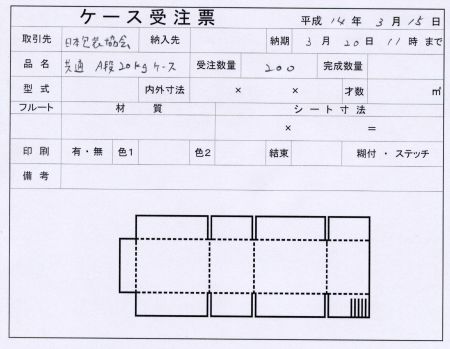 ケース受注票 平成 14年 3月 15日
取引先 日本包装協会 納入先 納期 3月 20日 11時まで
品名 共通 A段20kgケース 受注数量 200 完成数量
型式 内外寸法 × × 才数 ㎡
フルート 材質 シート寸法
× =
印刷 有・無 色1 色2 結束 糊付・ステッチ
備考